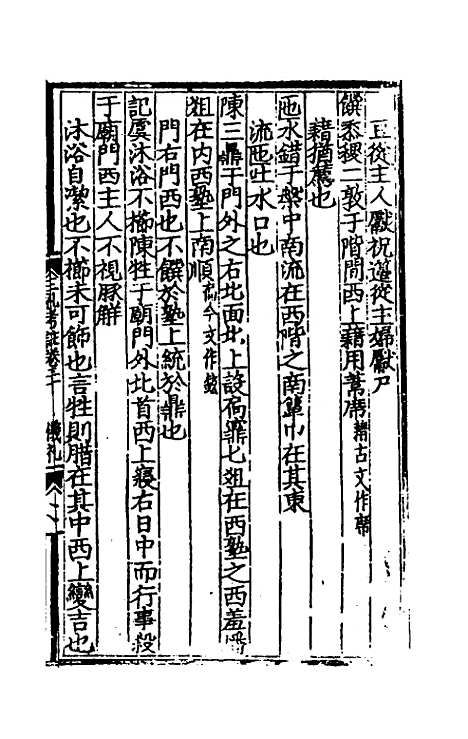 豆從主人獻祝籩從主婦獻尸
饌黍稷二敦于階間西上藉用葦席藉古文作席
藉猶薦也
匜水錯于槃中南流在西階之南簞巾在其東
流匜吐水口也
陳三鼎于門外之右北面北上設扃鼏匕俎在西塾之西羞燔
俎在内西塾上南順扃今文作鉉
門右門西也不饌於塾上統於鼎也
記虞沐浴不櫛陳牲于廟門外北首西上寢右日中而行事殺
于廟門西主人不視豚解
沐浴自潔也不櫛未可飾也言牲則腊在其中西上變吉也
三礼考註卷三十 儀礼